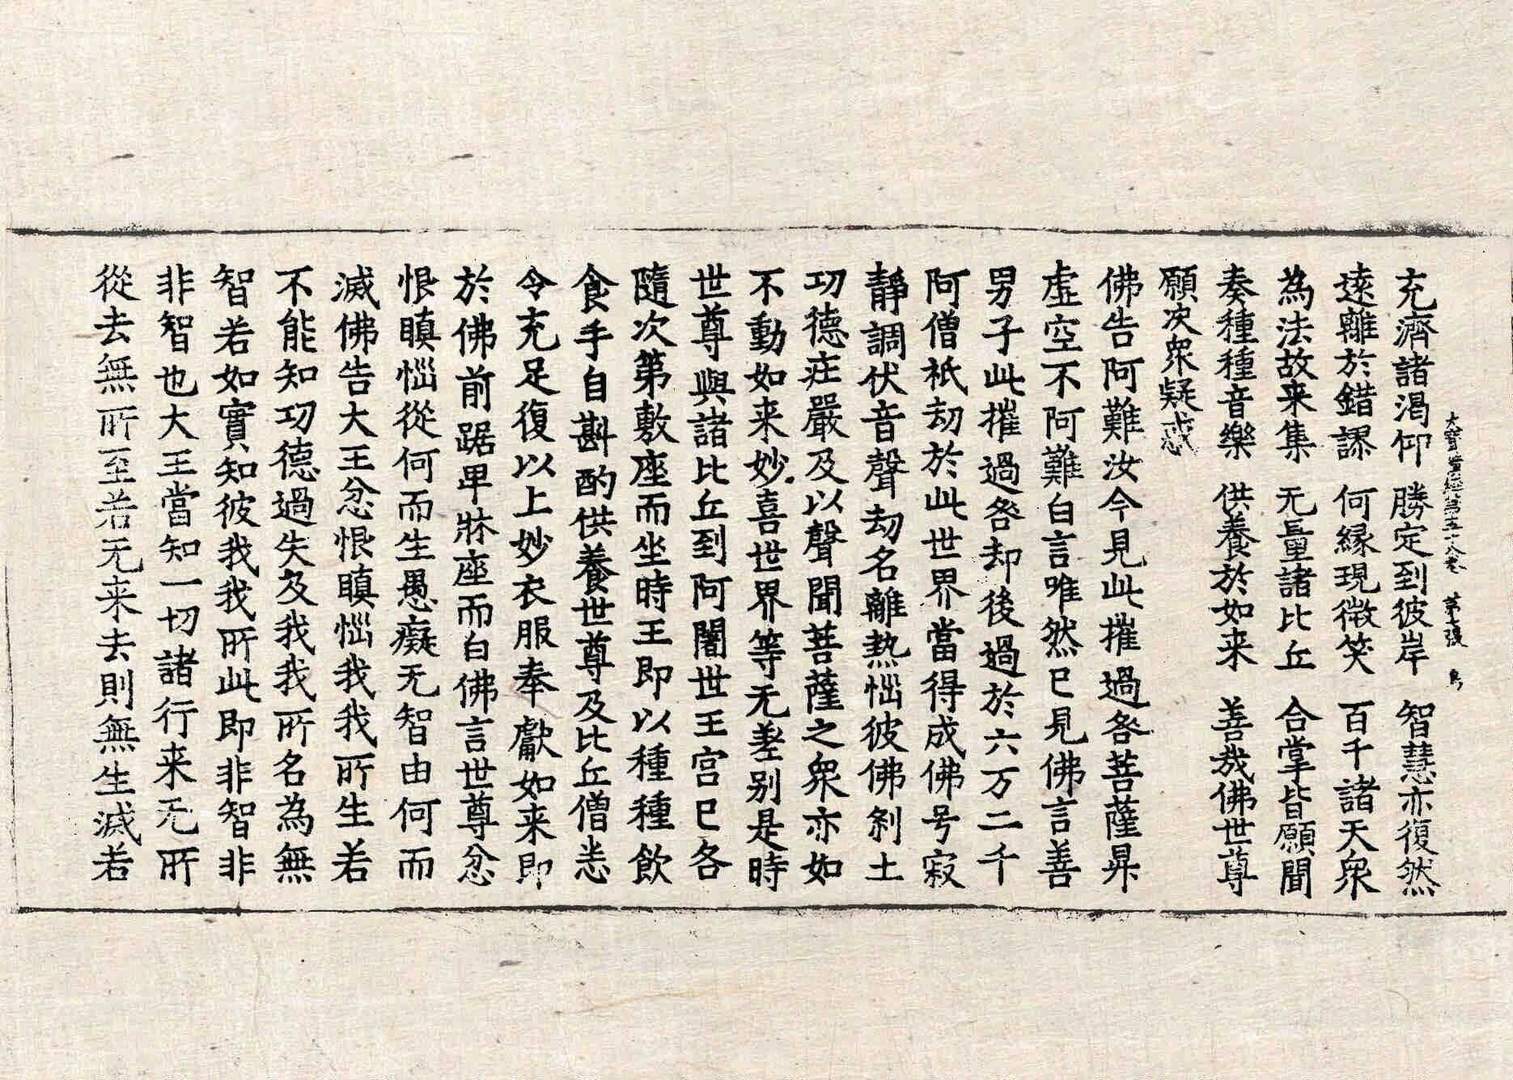 大寶積經第五十八卷 第七張 鳥
充濟諸渴仰 勝定到彼岸 智慧亦復然
遠離於錯謬 何緣現微笑 百千諸天衆
為法故来集 无量諸比丘 合掌皆願聞
奏種種音樂 供養於如来 善哉佛世尊
願次衆疑惑
佛告阿難汝今見此摧過咎菩薩昇
虛空不阿難白言唯然已見佛言善
男子此摧過咎却後過於六万二千
阿僧祇劫於此世界當得成佛号寂
靜調伏音聲劫名離熱惱彼佛刹土
功德莊嚴及以聲聞菩薩之衆亦如
不動如来妙喜世界等无差别是時
世尊與諸比丘到阿闍世王宫已各
隨次第敷座而坐時王即以種種飲
食手自斟酌供養世尊及比丘僧悉
令充足復以上妙衣服奉獻如来即
於佛前踞卑牀座而白佛言世尊忿
恨瞋惱從何而生愚癡无智由何而
滅佛告大王忿恨瞋惱我我所生若
不能知功德過失及我我所名為無
智若如實知彼我我所此即非智非
非智也大王當知一切諸行来无所
從去無所至若无来去則無生滅若